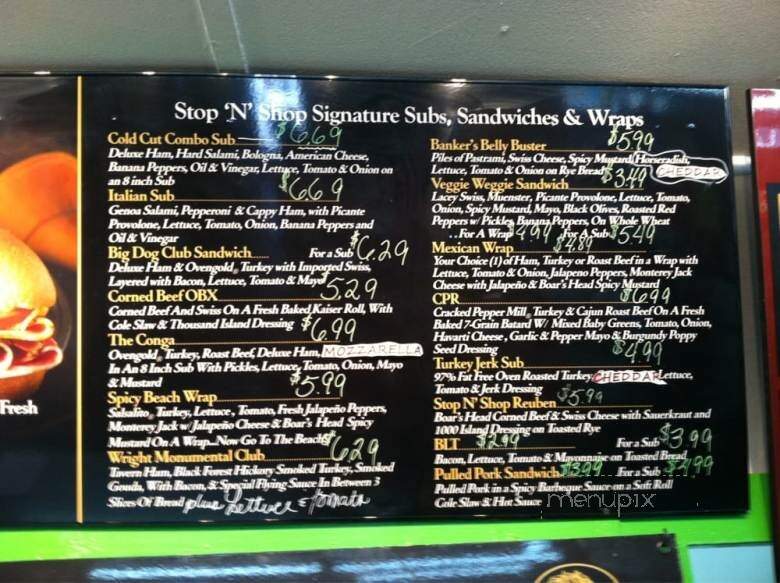 Stop 'N' Shop Signature Subs, Sandwiches & Wraps
Cold Cut Combo Sub $6.69
Deluxe Ham, Hard Salami, Bologna, American Cheese,
Banana Peppers, Oil & Vinegar, Lettuce, Tomato & Onion on
an 8 inch Sub
Italian Sub $6.69
Genoa Salami, Pepperoni & Cappy Ham, with Picante
Provolone, Lettuce, Tomato, Onion, Banana Peppers and
Oil & Vinegar
Big Dog Club Sandwich...... For a Sub $6.29
Deluxe Ham & Ovengold® Turkey with Imported Swiss,
Layered with Bacon, Lettuce, Tomato & Mayo
Corned Beef OBX 5.29
Corned Beef And Swiss On A Fresh Baked Kaiser Roll, With
Cole Slaw & Thousand Island Dressing
The Conga $6.99
Ovengold® Turkey, Roast Beef, Deluxe Ham, MOZZARELLA
In An 8 Inch Sub With Pickles, Lettuce, Tomato, Onion, Mayo
& Mustard
Spicy Beach Wrap $5.99
Salsalito® Turkey, Lettuce, Tomato, Fresh Jalapeño Peppers,
Monterey Jack w/ Jalapeño Cheese & Boar's Head Spicy
Mustard On A Wrap...Now Go To The Beach!
Wright Monumental Club $6.29
Tavern Ham, Black Forest Hickory Smoked Turkey, Smoked
Gouda, With Bacon, & Special Flying Sauce In Between 3
Slices Of Bread plus Lettuce & Tomato
Banker's Belly Buster $5.99
Piles of Pastrami, Swiss Cheese, Spicy Mustard, Horseradish,
Lettuce, Tomato & Onion on Rye Bread CHEDDAR
Veggie Weggie Sandwich $3.49
Lacey Swiss, Muenster, Picante Provolone, Lettuce, Tomato,
Onion, Spicy Mustard, Mayo, Black Olives, Roasted Red
Peppers w/ Pickles, Banana Peppers, On Whole Wheat
. . For A Wrap $4.99 For A Sub $5.49
Mexican Wrap $4.89
Your Choice (1) of Ham, Turkey or Roast Beef in a Wrap with
Lettuce, Tomato & Onion, Jalapeno Peppers, Monterey Jack
Cheese with Jalapeño & Boar's Head Spicy Mustard
CPR $6.99
Cracked Pepper Mill® Turkey & Cajun Roast Beef On A Fresh
Baked 7-Grain Batard W/ Mixed Baby Greens, Tomato, Onion,
Havarti Cheese, Garlic & Pepper Mayo & Burgundy Poppy
Seed Dressing
Turkey Jerk Sub $4.99
97% Fat Free Oven Roasted Turkey, CHEDDAR Lettuce,
Tomato & Jerk Dressing
Stop N' Shop Reuben $5.99
Boar's Head Corned Beef & Swiss Cheese with Sauerkraut and
1000 Island Dressing on Toasted Rye
BLT $2.99 For a Sub $3.99
Bacon, Lettuce, Tomato & Mayonnaise on Toasted Bread
Pulled Pork Sandwich $3.99 For a Sub $4.99
Pulled Pork in a Spicy Barbeque Sauce on a Soft Roll
Cole Slaw & Hot Sauce
menupix
Fresh